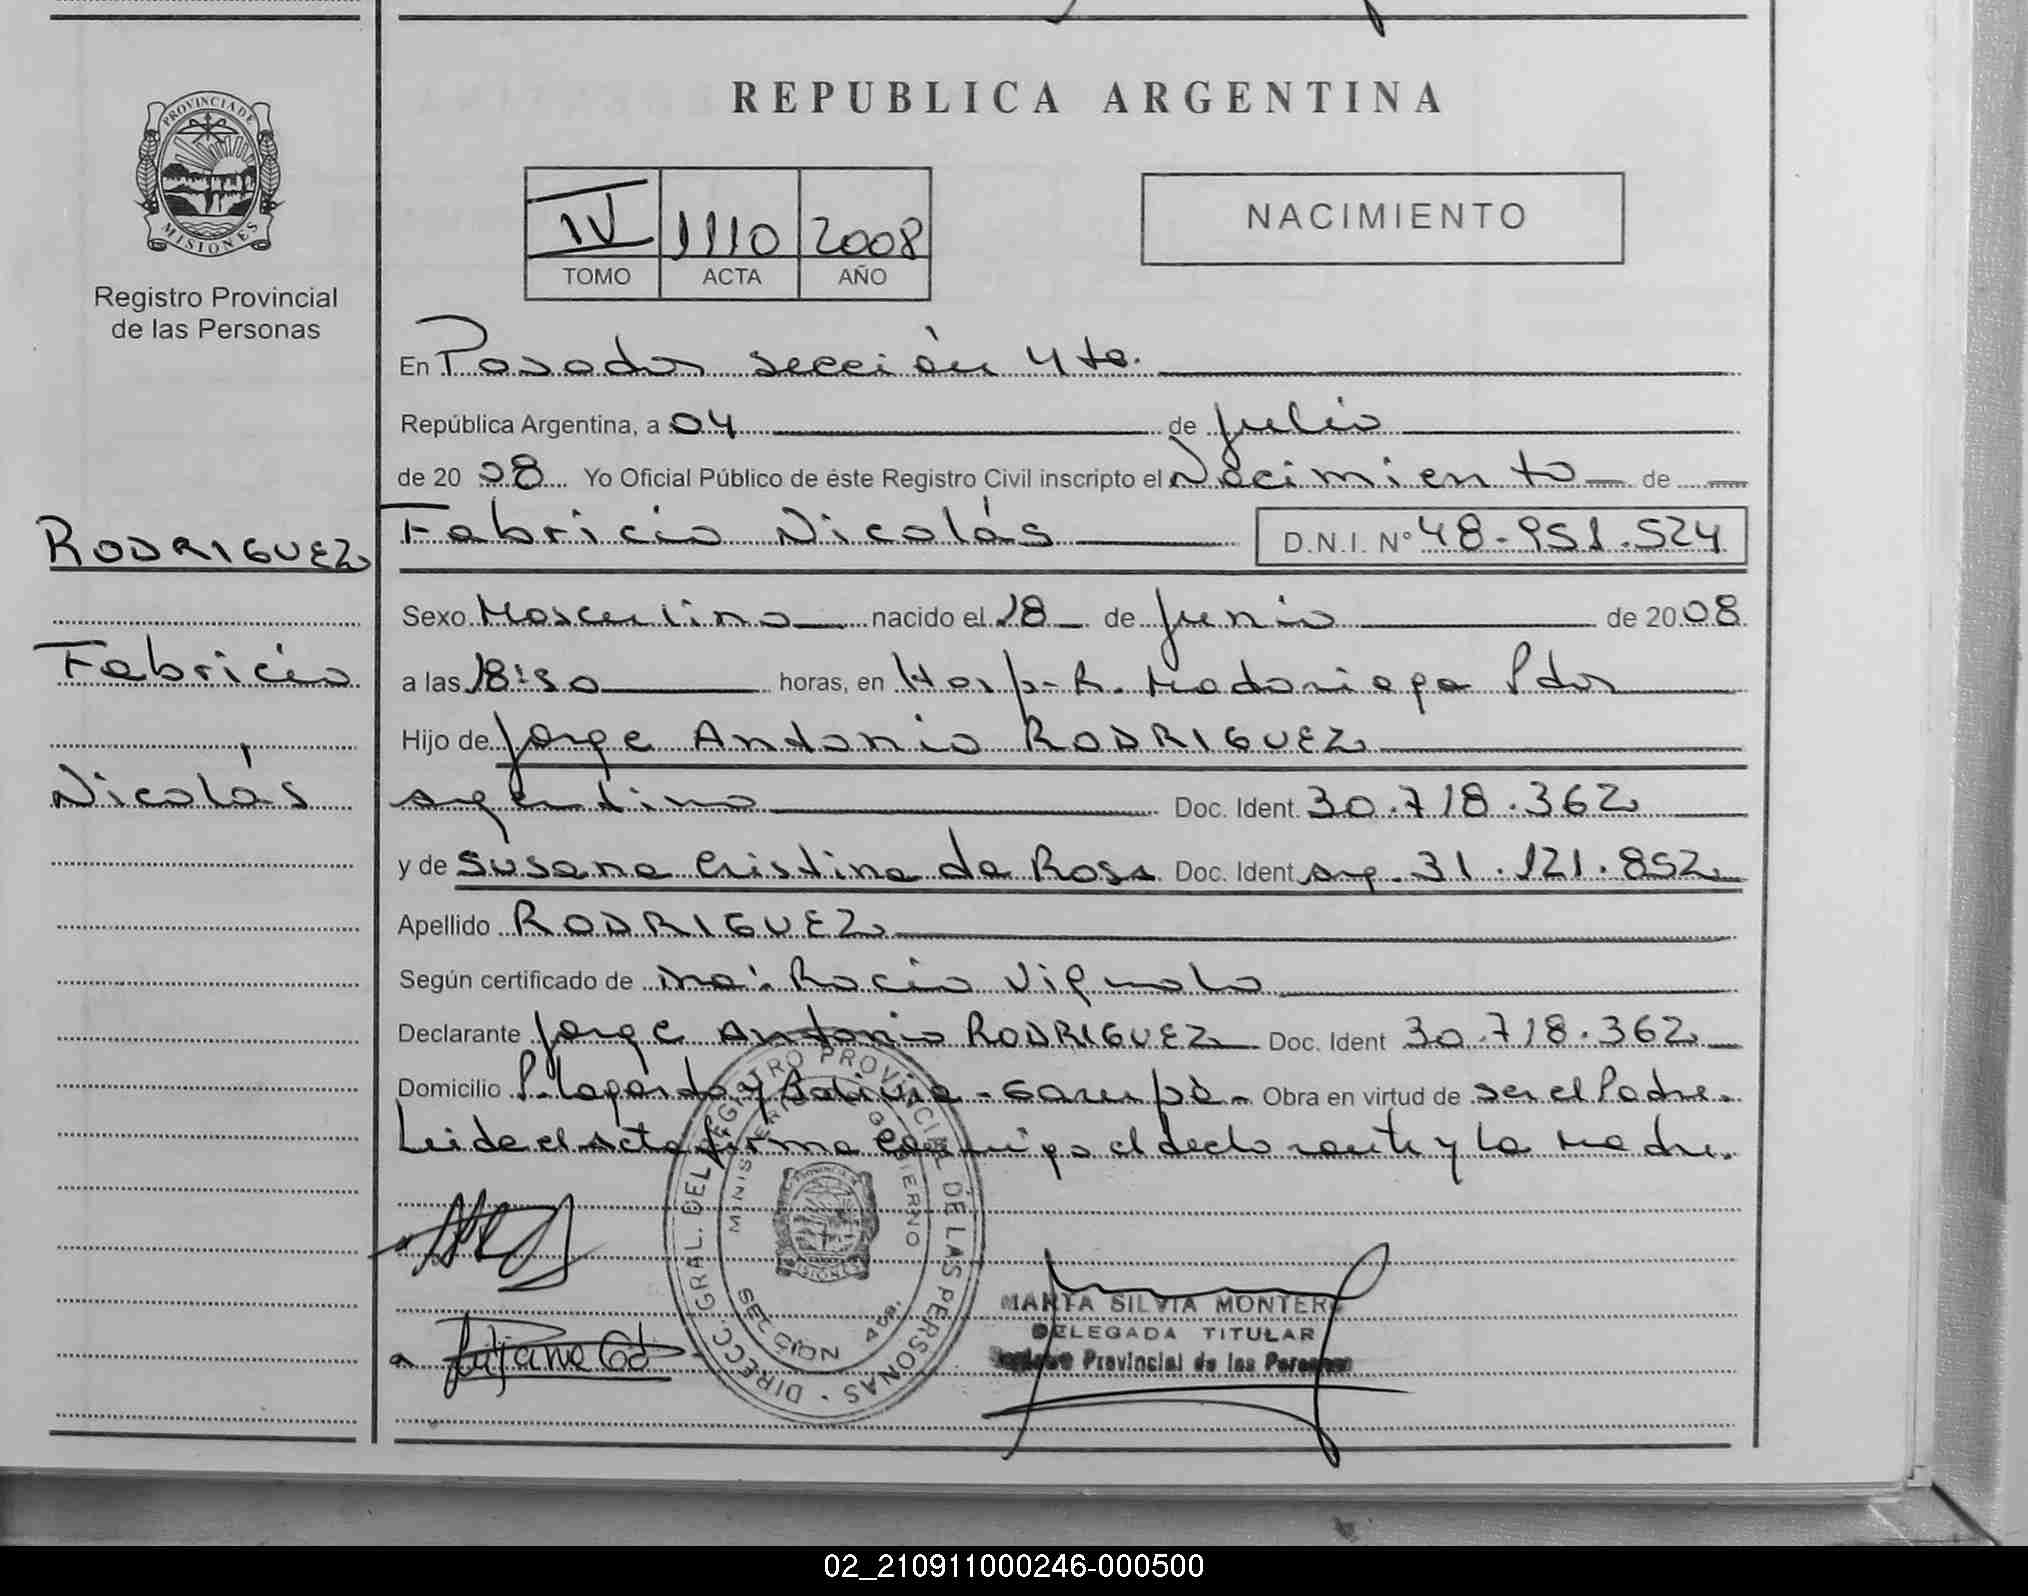 REPUBLICA ARGENTINA
PROVINCIA DE
MISIONES
Registro Provincial
de las Personas
IV 1110 2008
TOMO ACTA AÑO
NACIMIENTO
En Posadas sección 4ta.
República Argentina, a 04 de julio
de 2008 Yo Oficial Público de éste Registro Civil inscripto el Nacimiento de
Fabricio Nicolás D.N.I. N° 48.951.524
RODRIGUEZ
Fabricio
Nicolás
Sexo Masculino nacido el 18 de junio de 2008
a las 18:30 horas, en Hosp. R. Madariaga Pdas
Hijo de Jorge Antonio RODRIGUEZ
argentino Doc. Ident. 30.718.362
y de Susana Cristina da Rosa Doc. Ident arg. 31.121.852
Apellido RODRIGUEZ
Según certificado de Ma: Rocío Vignolo
Declarante Jorge Antonio RODRIGUEZ Doc. Ident 30.718.362
Domicilio y Bolivia - Garupá - Obra en virtud de ser el Padre.
Leída el Acta firma conmigo el declarante y la madre.
DIRECC. GRAL. DEL REGISTRO PROVINCIAL DE LAS PERSONAS
MINISTERIO DE GOBIERNO
SECCION 4ta.
PROVINCIA DE
MISIONES
MARTA SILVIA MONTERO
DELEGADA TITULAR
Registro Provincial de las Personas
02_210911000246-000500